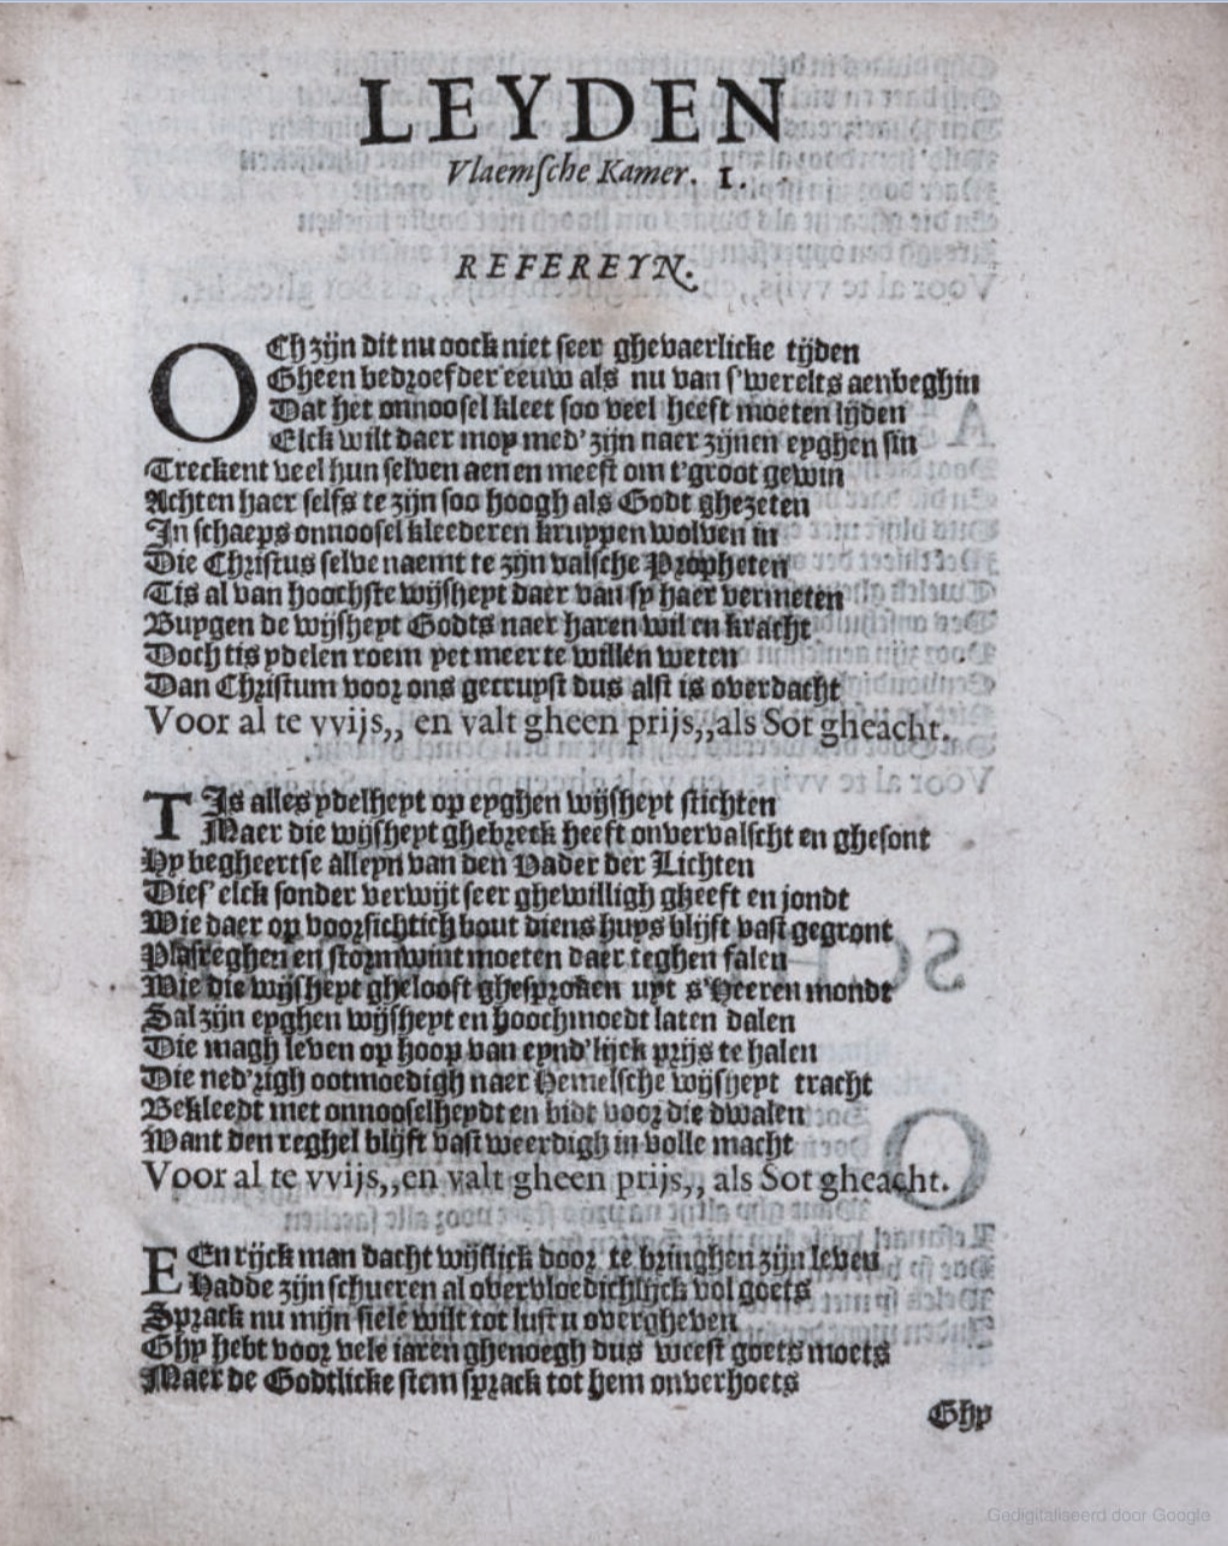 LEYDEN
Vlaemsche Kamer. I.
REFEREYN.
OCh zijn dit nu oock niet seer ghevaerlicke tijden
Gheen bedroefder eeuw als nu van s'werelts aenbeghin
Dat het onnoosel kleet soo veel heeft moeten lijden
Elck wilt daer moy med' zijn naer zijnen eyghen sin
Treckent veel hun selven aen en meest om t'groot gewin
Achten haer selfs te zijn soo hoogh als Godt ghezeten
In schaeps onnoosel kleederen kruppen wolven in
Die Christus selve naemt te zijn valsche Propheten
Tis al van hoochste wijsheyt daer van sy haer vermeten
Buygen de wijsheyt Godts naer haren wil en kracht
Doch tis ydelen roem yet meer te willen weten
Dan Christum voor ons gecruyst dus alst is overdacht
Voor al te vvijs,, en valt gheen prijs,,als Sot gheacht.
TIs alles ydelheyt op eyghen wijsheyt stichten
Maer die wijsheyt ghebreck heeft onvervalscht en ghesont
Hy begheertse alleyn van den Vader der Lichten
Dies' elck sonder verwijt seer ghewilligh gheeft en jondt
Wie daer op voorsichtich bout diens huys blijft vast gegront
Plasreghen en stormwint moeten daer teghen falen
Wie die wijsheyt ghelooft ghesproken uyt s'Heeren mondt
Sal zijn eyghen wijsheyt en hoochmoedt laten dalen
Die magh leven op hoop van eynd'lijck prijs te halen
Die ned'righ ootmoedigh naer Hemelsche wijsheyt tracht
Bekleedt met onnooselheydt en bidt voor die dwalen
Want den reghel blijft vast weerdigh in volle macht
Voor al te vvijs,,en valt gheen prijs,, als Sot gheacht.
EEn rijck man dacht wijslick door te bringhen zijn leven
Hadde zijn schueren al overvloedichlijck vol goets
Sprack nu mijn siele wilt tot lust u overgheven
Ghy hebt voor vele iaren ghenoegh dus weest goets moets
Maer de Godtlicke stem sprack tot hem onverhoets
Ghy
Gedigitaliseerd door Google